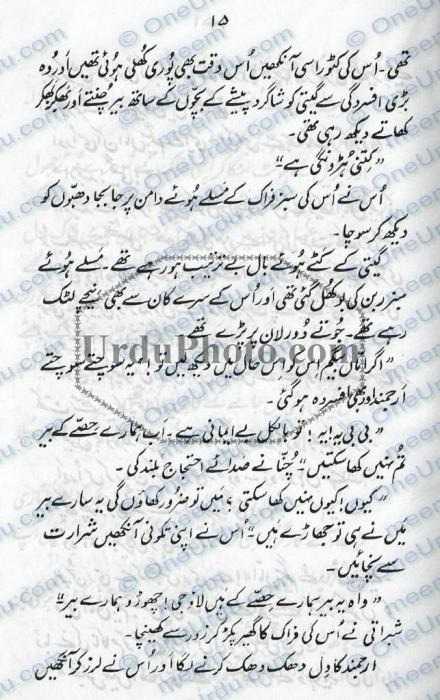 ۱۵
تھی۔ اُس کی کٹورا سی آنکھیں اُس وقت بھی پُوری کُھلی ہوئی تھیں اور وہ
بڑی افسردگی سے گیتی کو شاگرد پیشے کے بچّوں کے ساتھ بیر چُنتے اور پُھکر پُھکر
کھاتے دیکھ رہی تھی۔
”کِتنی ہُڑدنگی ہے“
اُس نے اُس کی سبز فراک کے مَسلے ہُوئے دامن پر جا بجا دھبّوں کو
دیکھ کر سوچا۔
گیتی کے کَٹے ہُوئے بال بے ترتیب ہو رہے تھے۔ مَسلے ہُوئے
سبز ربن کی گِرہ کُھل گئی تھی اور اُس کے سرے کان سے بھی نیچے لٹک
رہے تھے۔ جُوتے دُور لان پر پڑے تھے
”اگر اماں بیگم اس کو اِس حال میں دیکھ لیں تو! “ یہ سوچتے سوچتے
ارجمند اور بھی افسردہ ہو گئی۔
”بی بی یہ! یہ! تو بالکل بے ایمانی ہے۔ اب ہمارے حِصّے کے بیر
تُم نہیں کھا سکتیں“ چُھنّا نے صدائے احتجاج بلند کی۔
”کیوں! کیوں نہیں کھا سکتی؟ میں تو ضرور کھاؤں گی یہ سارے بیر
میں نے ہی تو جھاڑے ہیں“ اُس نے اپنی تکونی آنکھیں شرارت
سے نچائیں۔
”واہ یہ بیر ہمارے حِصّے کے ہیں لاؤ جی! چھوڑو ہمارے بیر“
شبراتی نے اُس کی فراک کا گھیر پکڑ کر زور سے کھینچا۔
ارجمند کا دِل دھک دھک کرنے لگا اور اُس نے لرز کر آنکھیں
UrduPhoto.com
OneUrdu.com